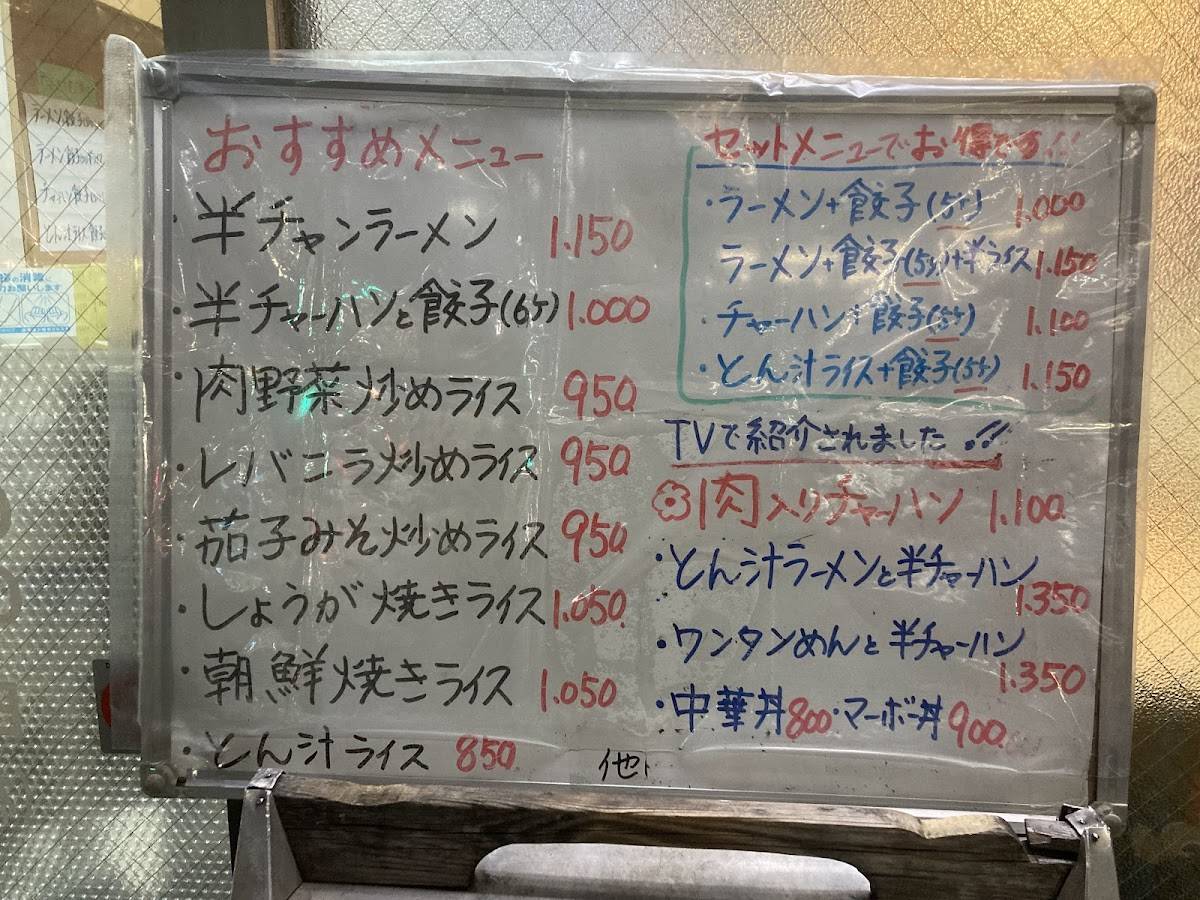 おすすめメニュー
・半チャンラーメン 1.150
・半チャーハンと餃子(6ケ) 1.000
・肉野菜炒めライス 950
・レバニラ炒めライス 950
・茄子みそ炒めライス 950
・しょうが焼きライス 1.050
・朝鮮焼きライス 1.050
・とん汁ライス 850
他
セットメニューでお得です!!
・ラーメン+餃子(5ケ) 1.000
ラーメン+餃子(5ケ)+半ライス 1.150
・チャーハン+餃子(5ケ) 1.100
・とん汁ライス+餃子(5ケ) 1.150
TVで紹介されました!!
肉入りチャーハン 1.100
・とん汁ラーメンと半チャーハン
1.350
・ワンタンめんと半チャーハン
1.350
・中華丼 800・マーボー丼 900